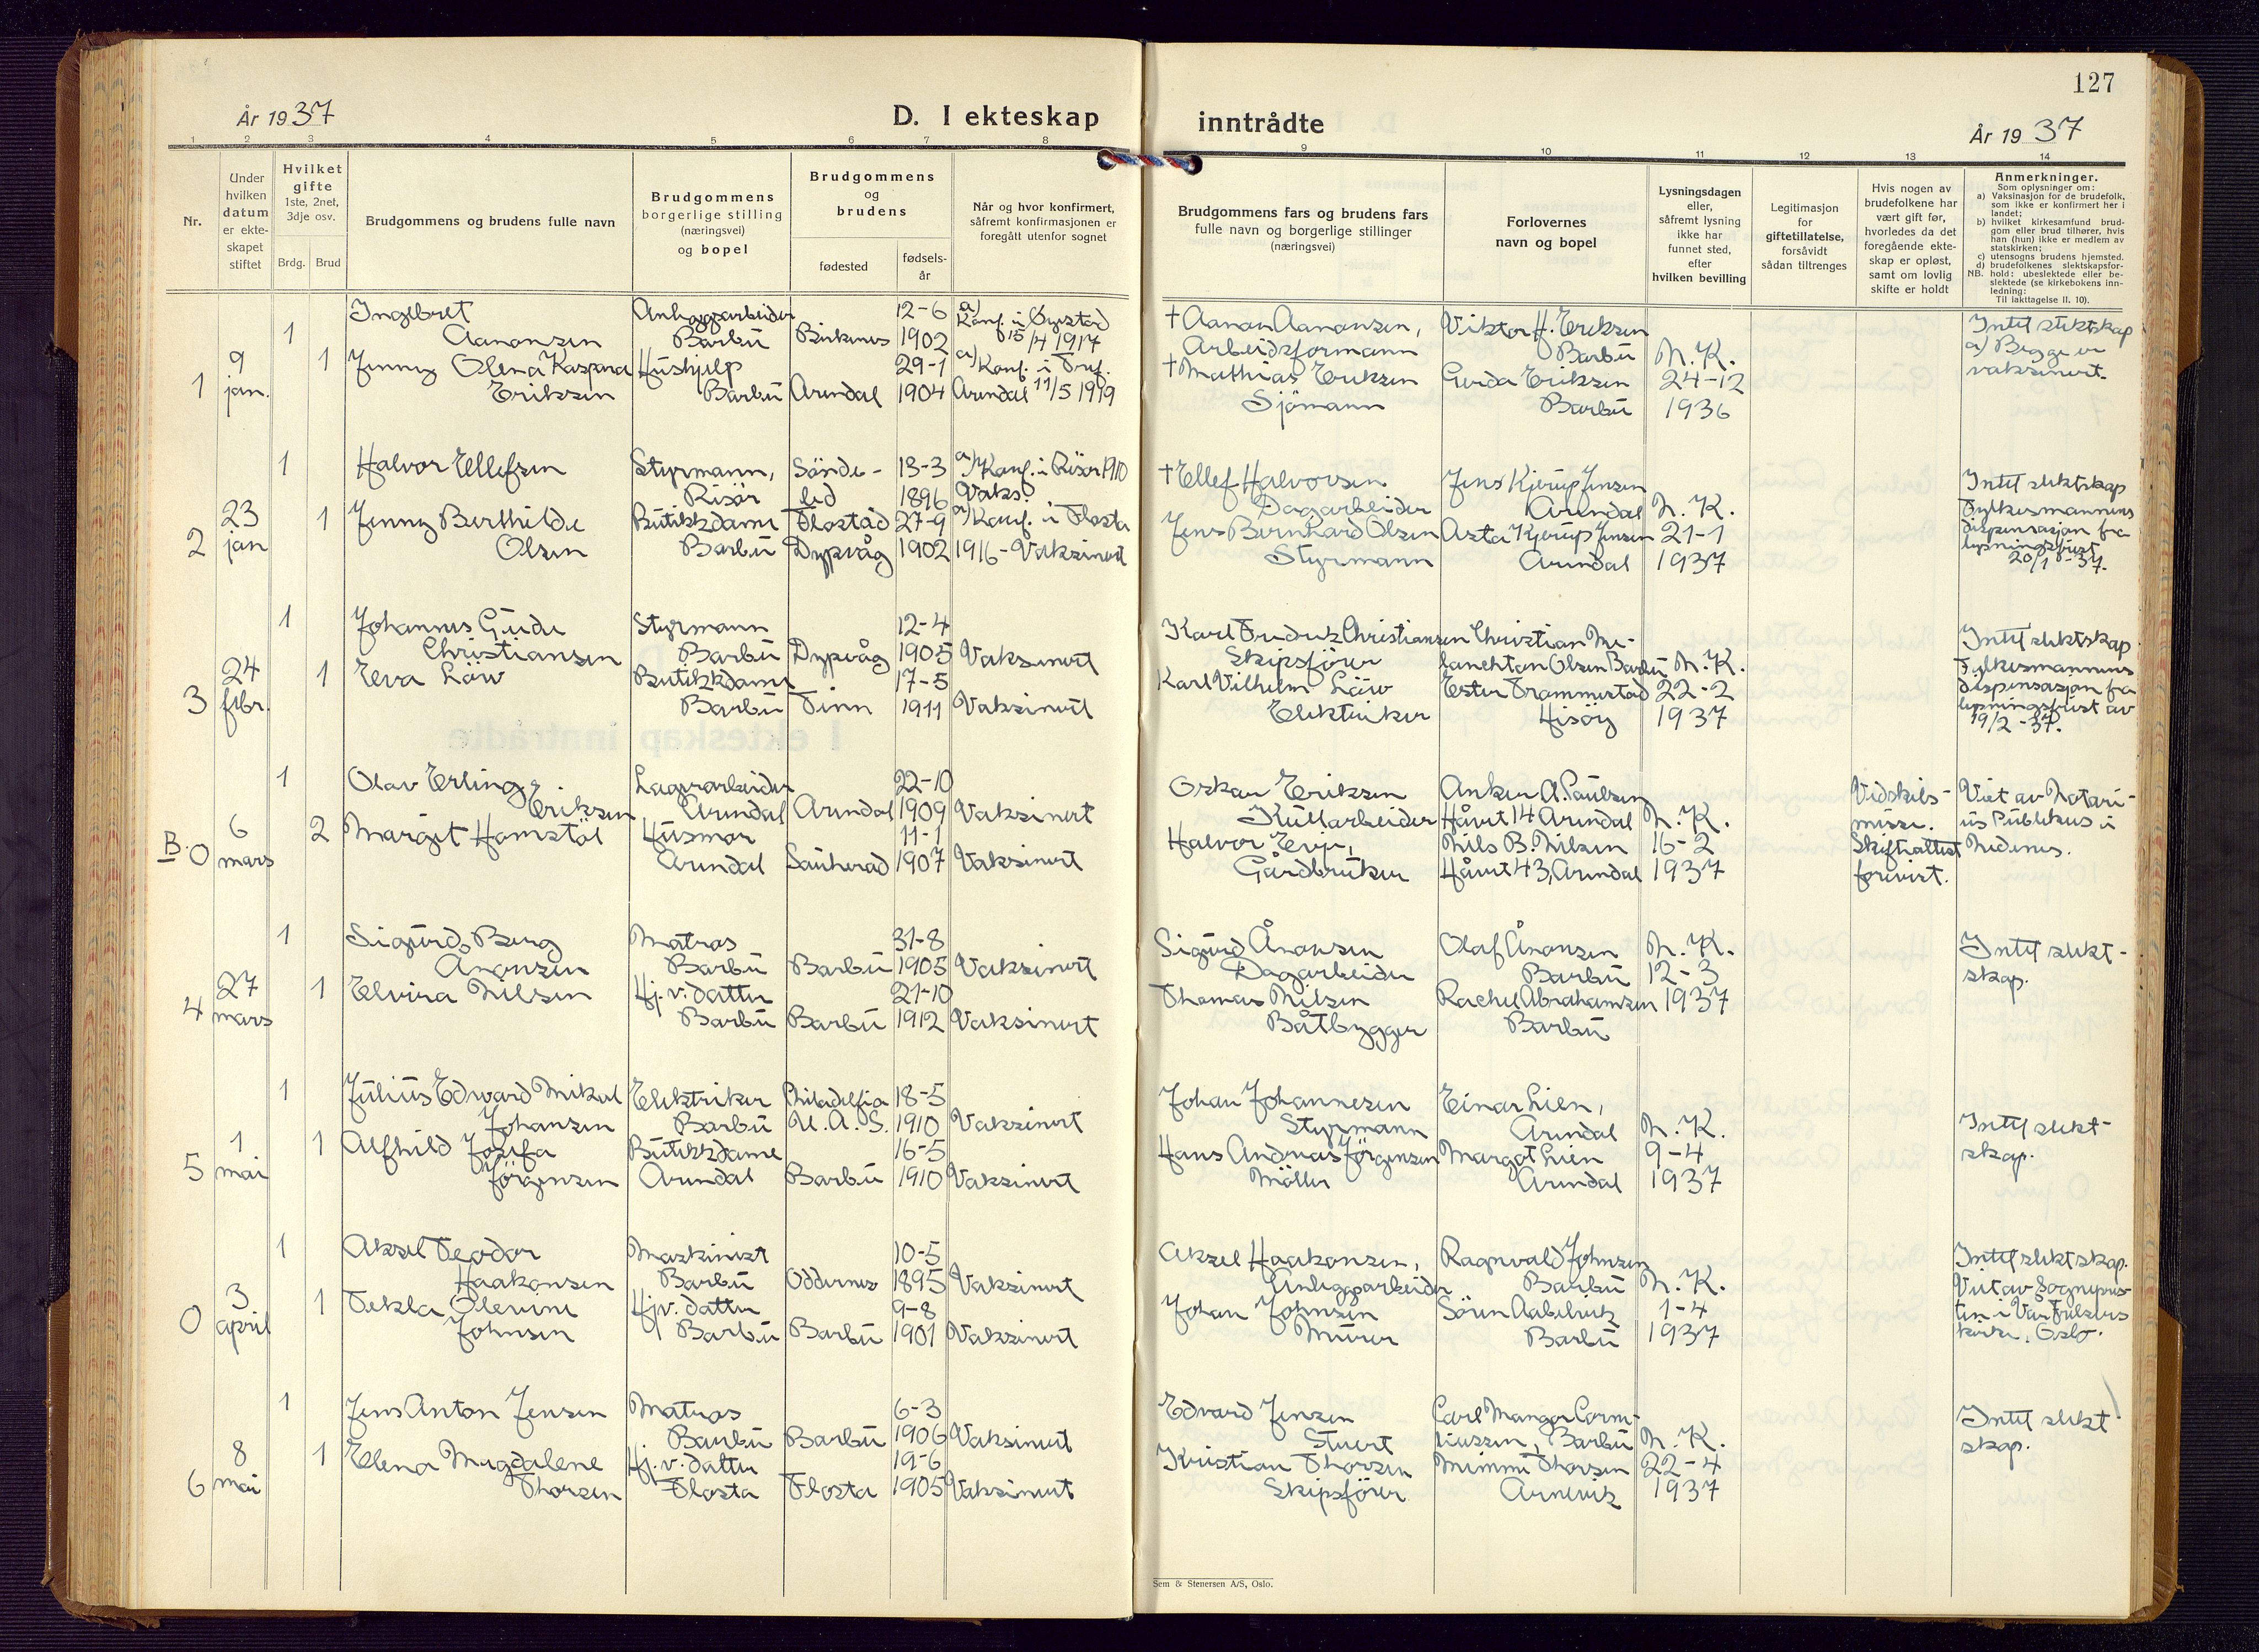 127
År 1937
D. I ekteskap
inntrådte
År 1937
1 2 3 4 5 6 7 8
9 10 11 12 13 14
Nr.
Under hvilken datum er ekteskapet stiftet
Hvilket gifte 1ste, 2net, 3dje osv.
Brdg.
Brud
Brudgommens og brudens fulle navn
Brudgommens borgerlige stilling (næringsvei) og bopel
Brudgommens og brudens
fødested
fødsels-år
Når og hvor konfirmert, såfremt konfirmasjonen er foregått utenfor sognet
Brudgommens fars og brudens fars fulle navn og borgerlige stillinger (næringsvei)
Forlovernes navn og bopel
Lysningsdagen eller, såfremt lysning ikke har funnet sted, efter hvilken bevilling
Legitimasjon for giftetillatelse, forsåvidt sådan tiltrenges
Hvis nogen av brudefolkene har vært gift før, hvorledes da det foregående ekteskap er opløst, samt om lovlig skifte er holdt
Anmerkninger.
Som oplysninger om:
a) Vaksinasjon for de brudefolk, som ikke er konfirmert her i landet;
b) hvilket kirkesamfund brudgom eller brud tilhører, hvis han (hun) ikke er medlem av statskirken;
c) utensogns brudens hjemsted.
d) brudefolkenes slektskapsforhold: ubeslektede eller beslektede (se kirkebokens innledning:
NB.
Til iakttagelse II. 10).
1
9 jan.
1 Ingebret Aanonsen
Anleggsarbeider Barbu
Birkenes
12-6 1902
a) Konf. i Øyestad 15/4 1917
† Aanon Aanonsen, Arbeidsformann
Viktor H. Eriksen Barbu
N. K. 24-12 1936
Intet slektskap a) Begge er vaksinert.
1 Jenny Olena Kaspara Eriksen
Hushjelp Barbu
Arendal
29-1 1904
a) Konf. i Tref. Arendal 11/5 1919
† Mathias Eriksen Sjömann
Gerda Eriksen Barbu
2
23 jan
1 Halvor Ellefsen
Styrmann, Risör
Sönde-led
13-3 1896
a) Konf. i Risör 1910 Vaks.
† Ellef Halvorsen Dagarbeider
Jens Kjerup Jensen Arendal
N. K. 21-1 1937
Intet slektskap Fylkesmannens dispensasjon fra lysningsfrist 20/1-37.
1 Jenny Berthilde Olsen
Butikkdame Barbu
Flostad Dypvåg
27-9 1902
a) Konf. i Flosta 1916 - Vaksinert
Jens Bernhard Olsen Styrmann
Asta Kjerup Jensen Arendal
3
24 febr.
1 Johannes Guide Christiansen
Styrmann Barbu
Dypvåg
12-4 1905
Vaksinert
Karl Fredrik Christiansen Skipsförer
Christian Melanchton Olsen Barbu
N. K. 22-2 1937
Intet slektskap Fylkesmannens dispensasjon fra lysningsfrist av 19/2-37.
1 Eva Löw
Butikkdame Barbu
Tinn
17-5 1911
Vaksinert
Karl Vilhelm Löw Elektriker
Ester Trommestad Hisöy
B. 0
6 mars
1 Olav Erling Eriksen
Lagerarbeider Arendal
Arendal
22-10 1909
Vaksinert
Oskar Eriksen Kullarbeider
Anker A. Paulsen Håvet 14 Arendal
N. K. 16-2 1937
Vidskils-misse. Skifteattest forevist.
Viet av Notarius Publikus i Nedenes.
2 Margit Homstöl
Husmor Arendal
Sauherad
11-1 1907
Vaksinert
Halvor Evje, Gårdbruker
Nils B. Nilsen Håvet 43, Arendal
4
27 mars
1 Sigurd Berg Ånonsen
Matros Barbu
Barbu
31-8 1905
Vaksinert
Sigurd Ånonsen Dagarbeider
Olaf Ånonsen Barbu
N. K. 12-3 1937
Intet slekt-skap.
1 Elvira Nilsen
Hj. v. datter Barbu
Barbu
21-10 1912
Vaksinert
Thomas Nilsen Båtbygger
Rachel Abrahamsen Barbu
5
1 mai
1 Julius Edward Mikal Johansen
Elektriker Barbu
Philadelfia U. A. S.
18-5 1910
Vaksinert
Johan Johannesen Styrmann
Einar Lien, Arendal
N. K. 9-4 1937
Intet slekt-skap.
1 Alfhild Josefa Jörgensen
Butikkdame Arendal
Barbu
16-5 1910
Vaksinert
Hans Andreas Jörgensen Möller
Margot Lien Arendal
0
3 april
1 Aksel Teodor Haakonsen
Maskinist Barbu
Oddernes
10-5 1895
Vaksinert
Aksel Haakonsen, Anleggsarbeider
Ragnvald Johnsen Barbu
N. K. 1-4 1937
Intet slektskap. Viet av Sogneprsten i Vår Frelsers kirke, Oslo.
1 Tekla Olevine Johnsen
Hj v. datter Barbu
Barbu
9-8 1901
Vaksinert
Johan Johnsen Murer
Sören Aabelvik Barbu
6
8 mai
1 Jens Anton Jensen
Matros Barbu
Barbu
6-3 1906
Vaksinert
Edvard Jensen Stuert
Carl Mangor Corneliussen, Barbu
N. K. 22-4 1937
Intet slekt skap.
1 Elena Magdalene Thorsen
Hj. v. datter Flosta
Flosta
19-6 1905
Vaksinert
Kristian Thorsen Skipsförer
Mimmi Thorsen Arnevik
Sem & Stenersen A/S, Oslo.